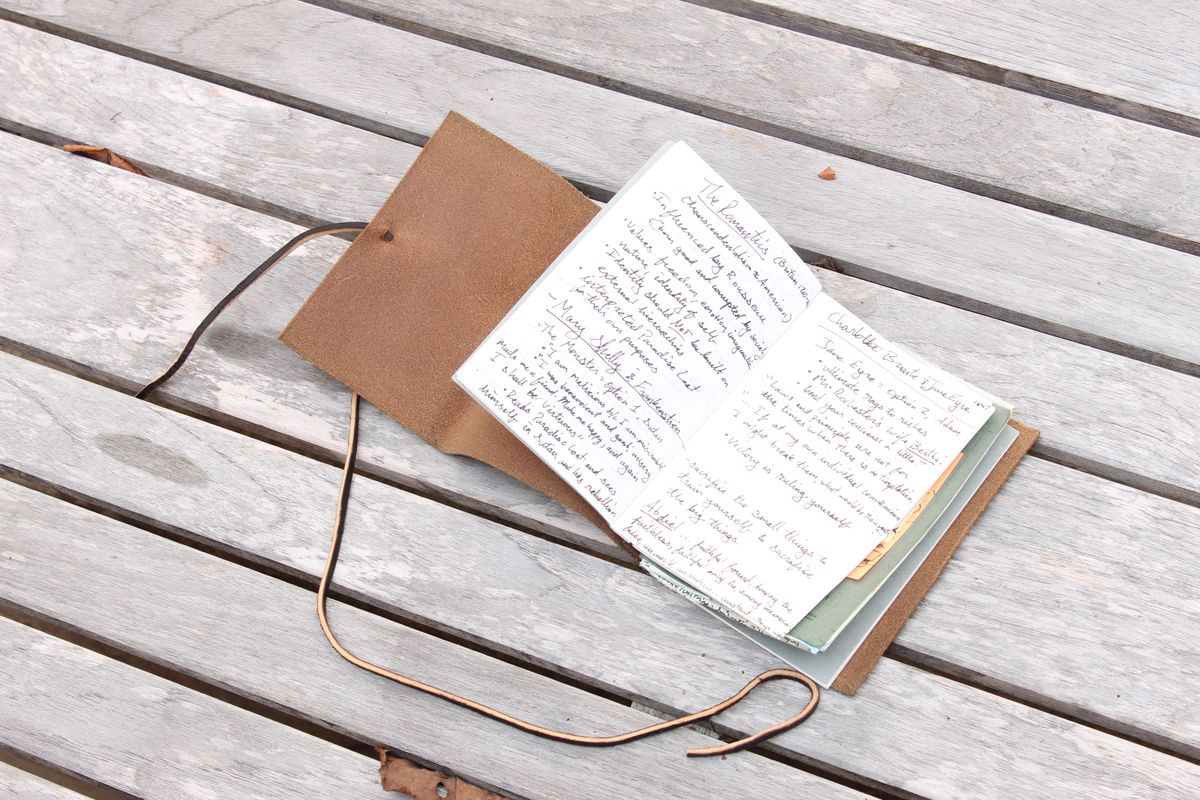 The Romantics (Britain
transcendentalism = American)
Influenced by Rousseau
born good and corrupted by society
Values freedom, emotion, imagination
nature, identity of self
Identity should Not be built on
external hierarchies
interpreted Paradise Lost
for their own purposes
- Mary Shelly & Frankenstein
The Monster: Option 1, Satan
"I am malicious b/c I am miserable"
"I was benevolent and good: misery
made me a fiend. Make me happy, and again
I shall be virtuous."
Reads Paradise Lost and sees
himself in Satan and his rebellion
Charlotte Bronte & Jane Eyre
Jane Eyre: option 2, Adam
ultimate rags to riches
Mr. Rochesters wife Bertha
"Laws and principle are not for
the times when there is no temptation
If at my own individual convenience I
might break them, what would be their worth
Victory is ruling yourself
sacrifice the small things to
train yourself to sacrifice
the big things.
Abdiel ... faithful found among the
faithless, faithful only he among